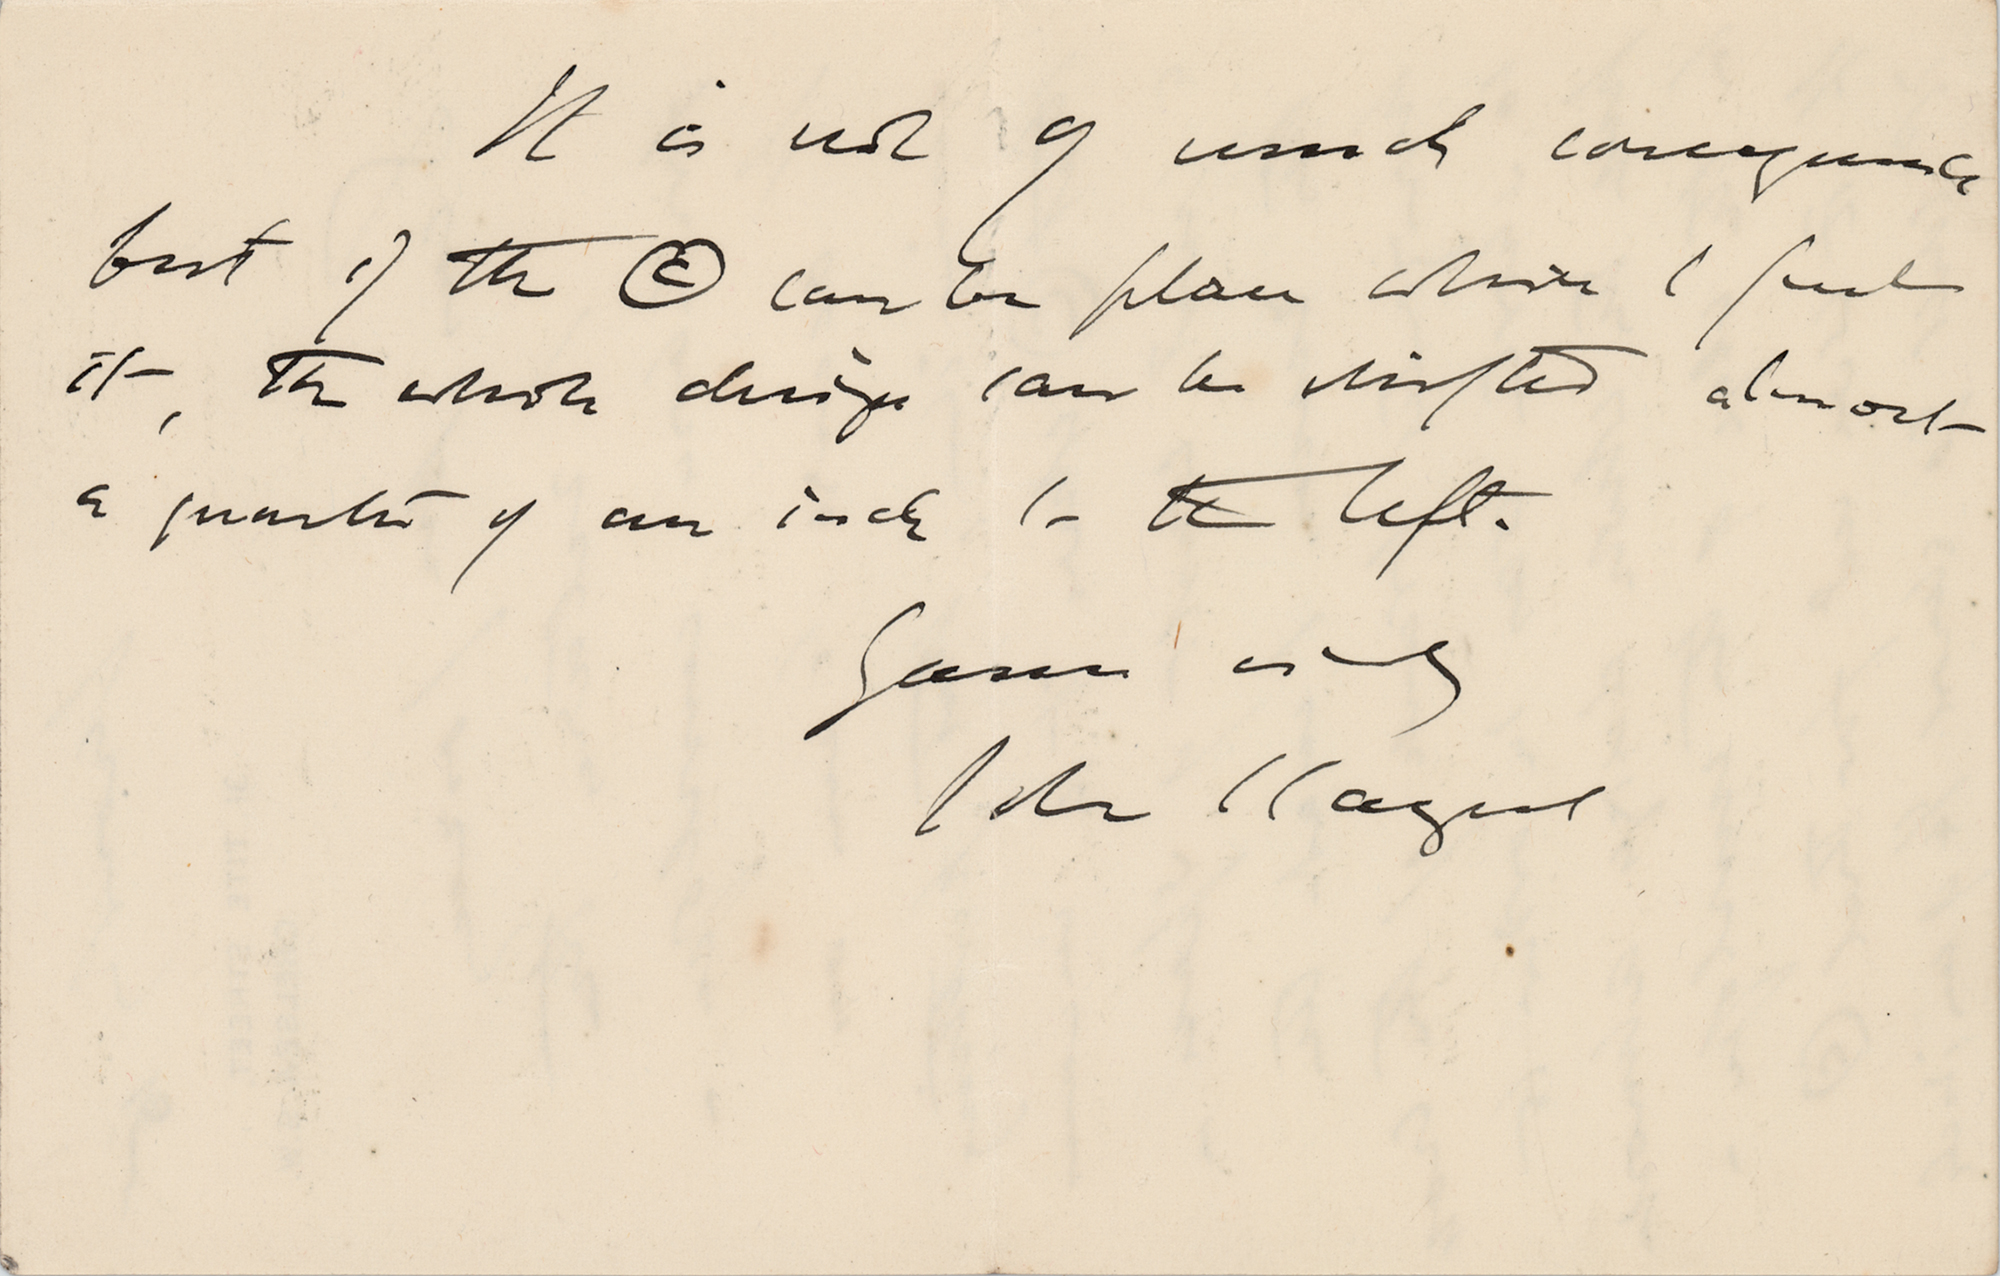 It is not of much consequence
but if the © can be place where I put
it, the whole design can be shifted almost
a quarter of an inch to the left.
Yours sincerely
John Hagued